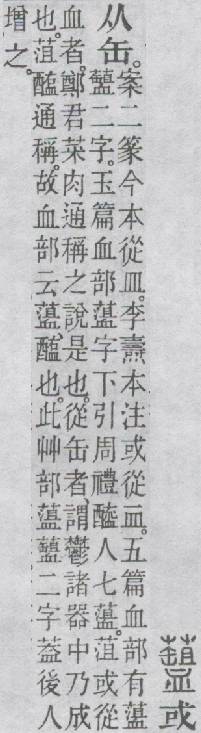 𧗕或
从缶。
案二篆今本從皿。李燾本注或從血。五篇血部有𧗎
𧗕二字。玉篇血部𧗎字下引周禮醢人七𧗎。菹或從
血者。鄭君菜肉通稱之說是也。從缶者、謂鬱諸器中乃成
也。菹醢通稱。故血部云𧗎、醢也。此艸部𧗎𧗕二字葢後人
增之。